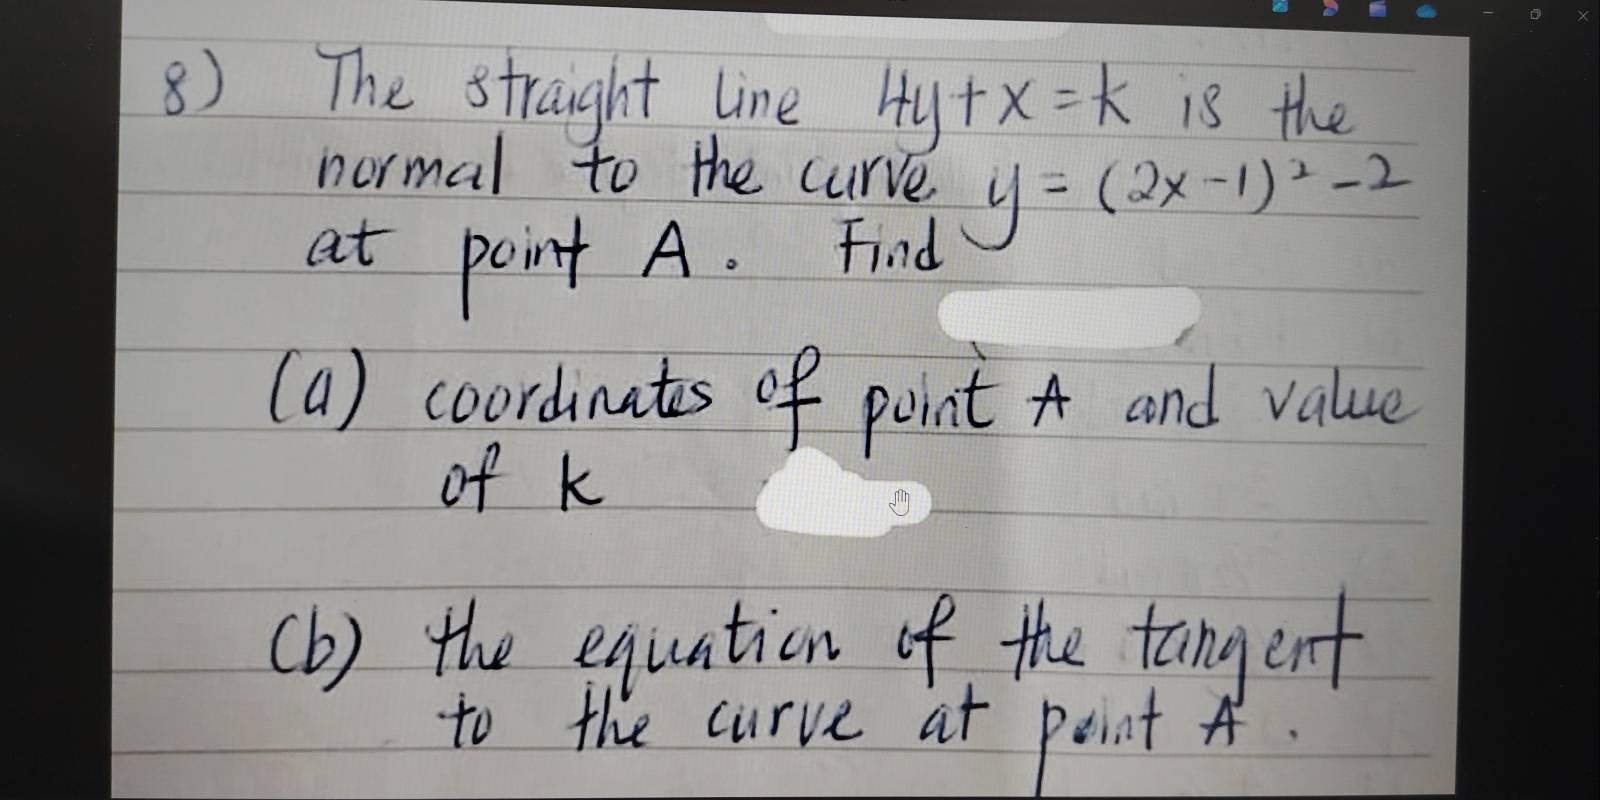 8) The straight line 4y+x=k is the
normal to the curve y = (2x-1)² -2
at point A. Find
(a) coordinates of point A and value
of k
(b) the equation of the tangent
to the curve at point A.